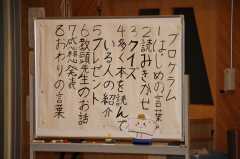 プログラム
1はじめの言葉
2読みきかせ
3クイズ
4多く本を読んで
いる人の紹介
5プレゼント
6教頭先生のお話
7感想発表
8おわりの言葉